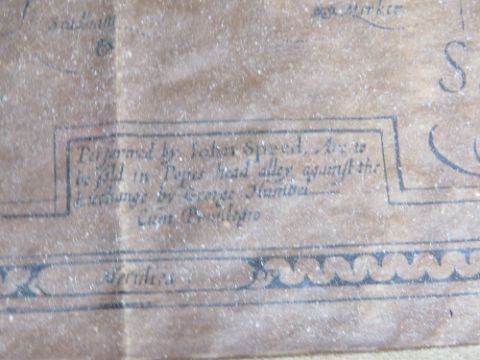 Market
S
Performed by Iohn Speed, Are to
be sold in Popes head alley against the
Exchange by George Humbel
Cum Privilegio